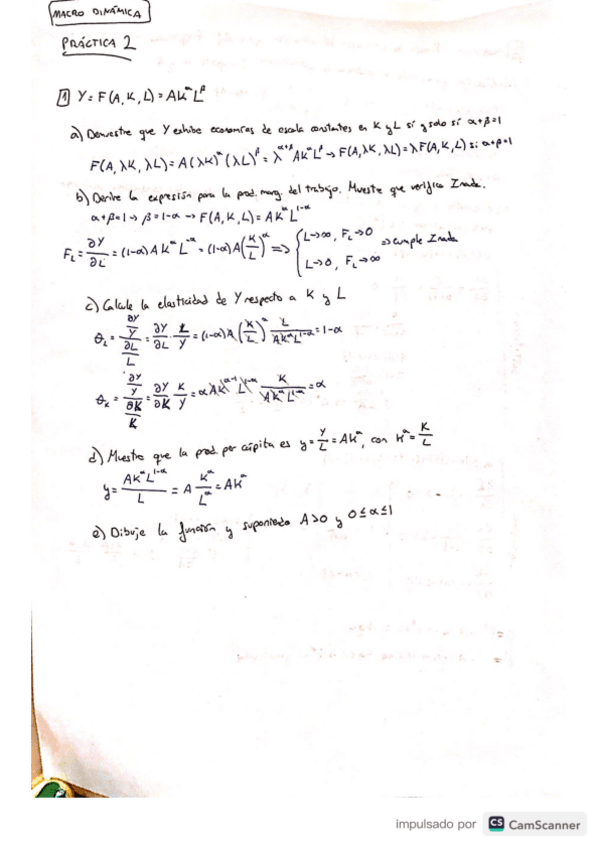 MACRO DINÁMICA
PRÁCTICA 2
1 Y = F(A, K, L) = AK^α L^β
a) Demuestre que Y exhibe economías de escala constantes en K y L sí y solo sí α+β=1
F(A, λK, λL) = A(λK)^α (λL)^β = λ^(α+β) AK^α L^β → F(A, λK, λL) = λF(A, K, L) si α+β=1
b) Derive la expresión para la prod. marg. del trabajo. Muestre que verifica Inada.
α+β=1 → β=1-α → F(A, K, L) = AK^α L^(1-α)
F_L = ∂Y/∂L = (1-α) A K^α L^-α = (1-α)A(K/L)^α => { L→∞, F_L→0
L→0, F_L→∞ => cumple Inada
c) Calcule la elasticidad de Y respecto a K y L
θ_L = (∂Y/Y)/(∂L/L) = ∂Y/∂L · L/Y = (1-α)A(K/L)^α L/(AK^α L^(1-α)) = 1-α
θ_K = (∂Y/Y)/(∂K/K) = ∂Y/∂K K/Y = αAK^(α-1) L^(1-α) K/(AK^α L^(1-α)) = α
d) Muestre que la prod. per cápita es y = Y/L = AK^α, con K^α = K/L
y = AK^α L^(1-α)/L = A K^α/L^α = AK^α
e) Dibuje la función y suponiendo A>0 y 0≤α≤1
impulsado por CS CamScanner